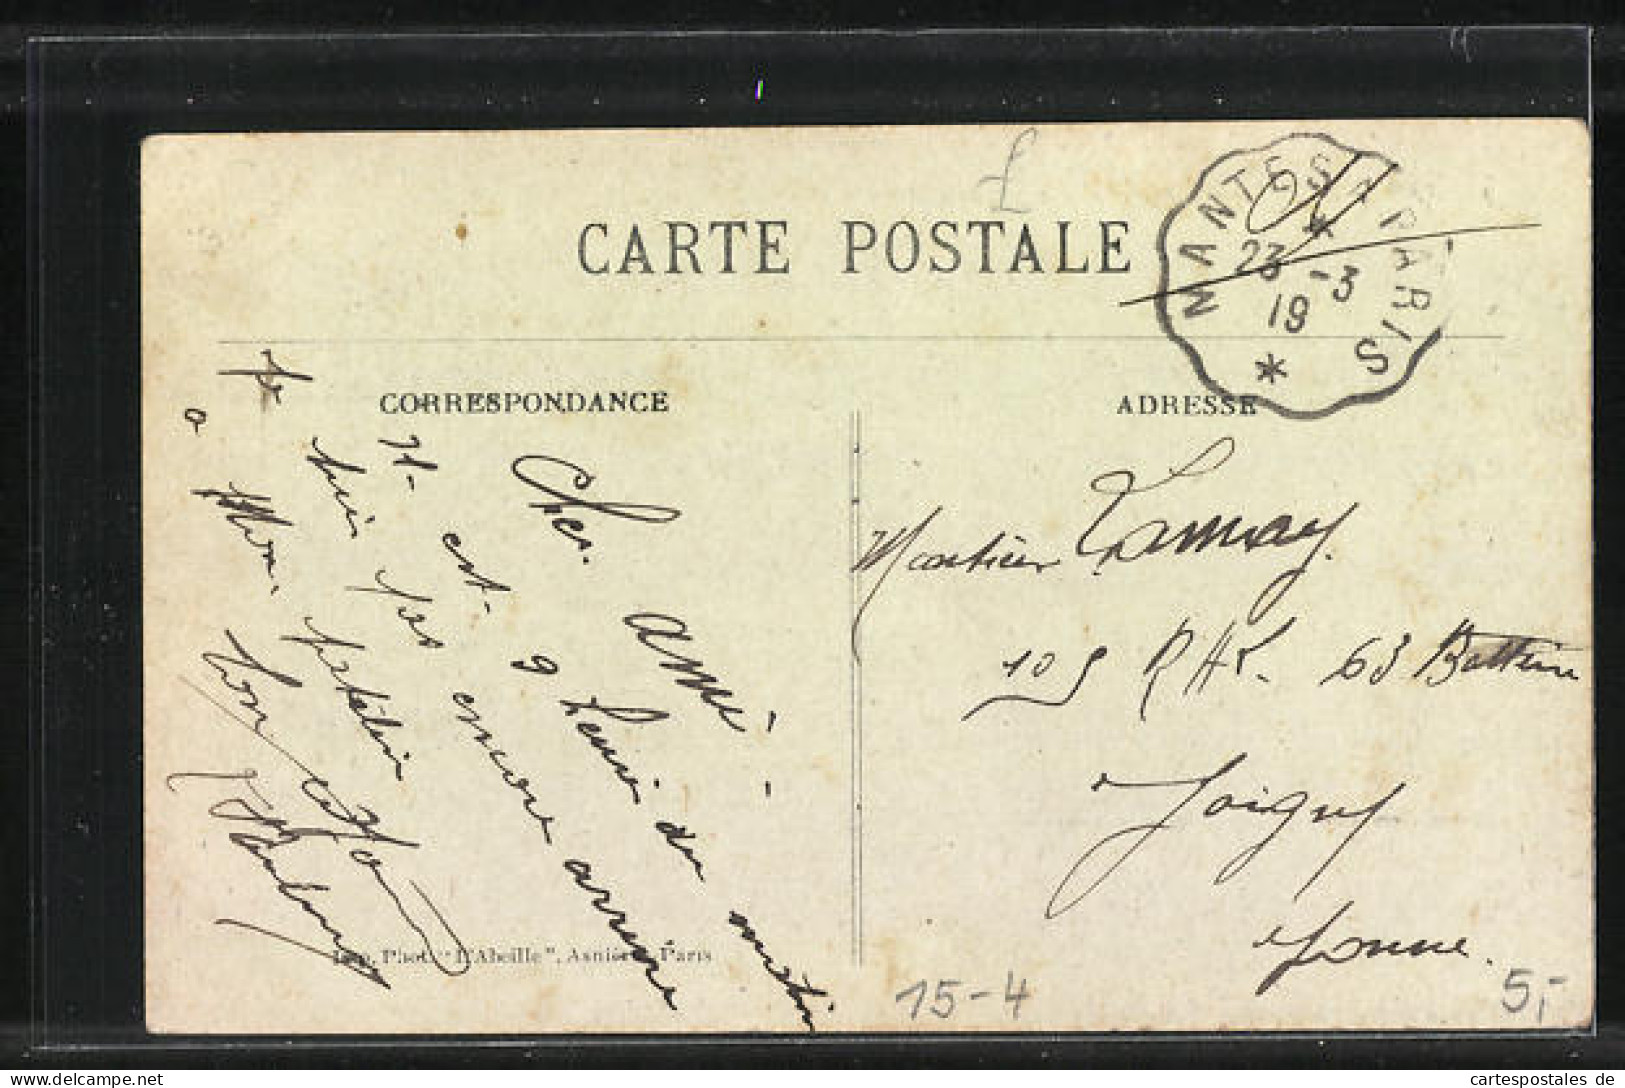 CARTE POSTALE
MANTES A PARIS
23 -3
19
*
CORRESPONDANCE
ADRESSE
Cher ami
It est 9 heures du matin
Je suis pas encore arrivé
a Mon
ton
Monsieur Lamay
105 R.A.L. 63 Batterie
Joigny
Yonne.
Imp. Phot. "L'Abeille", Asnières, Paris
15-4
5,-
cartespostales de